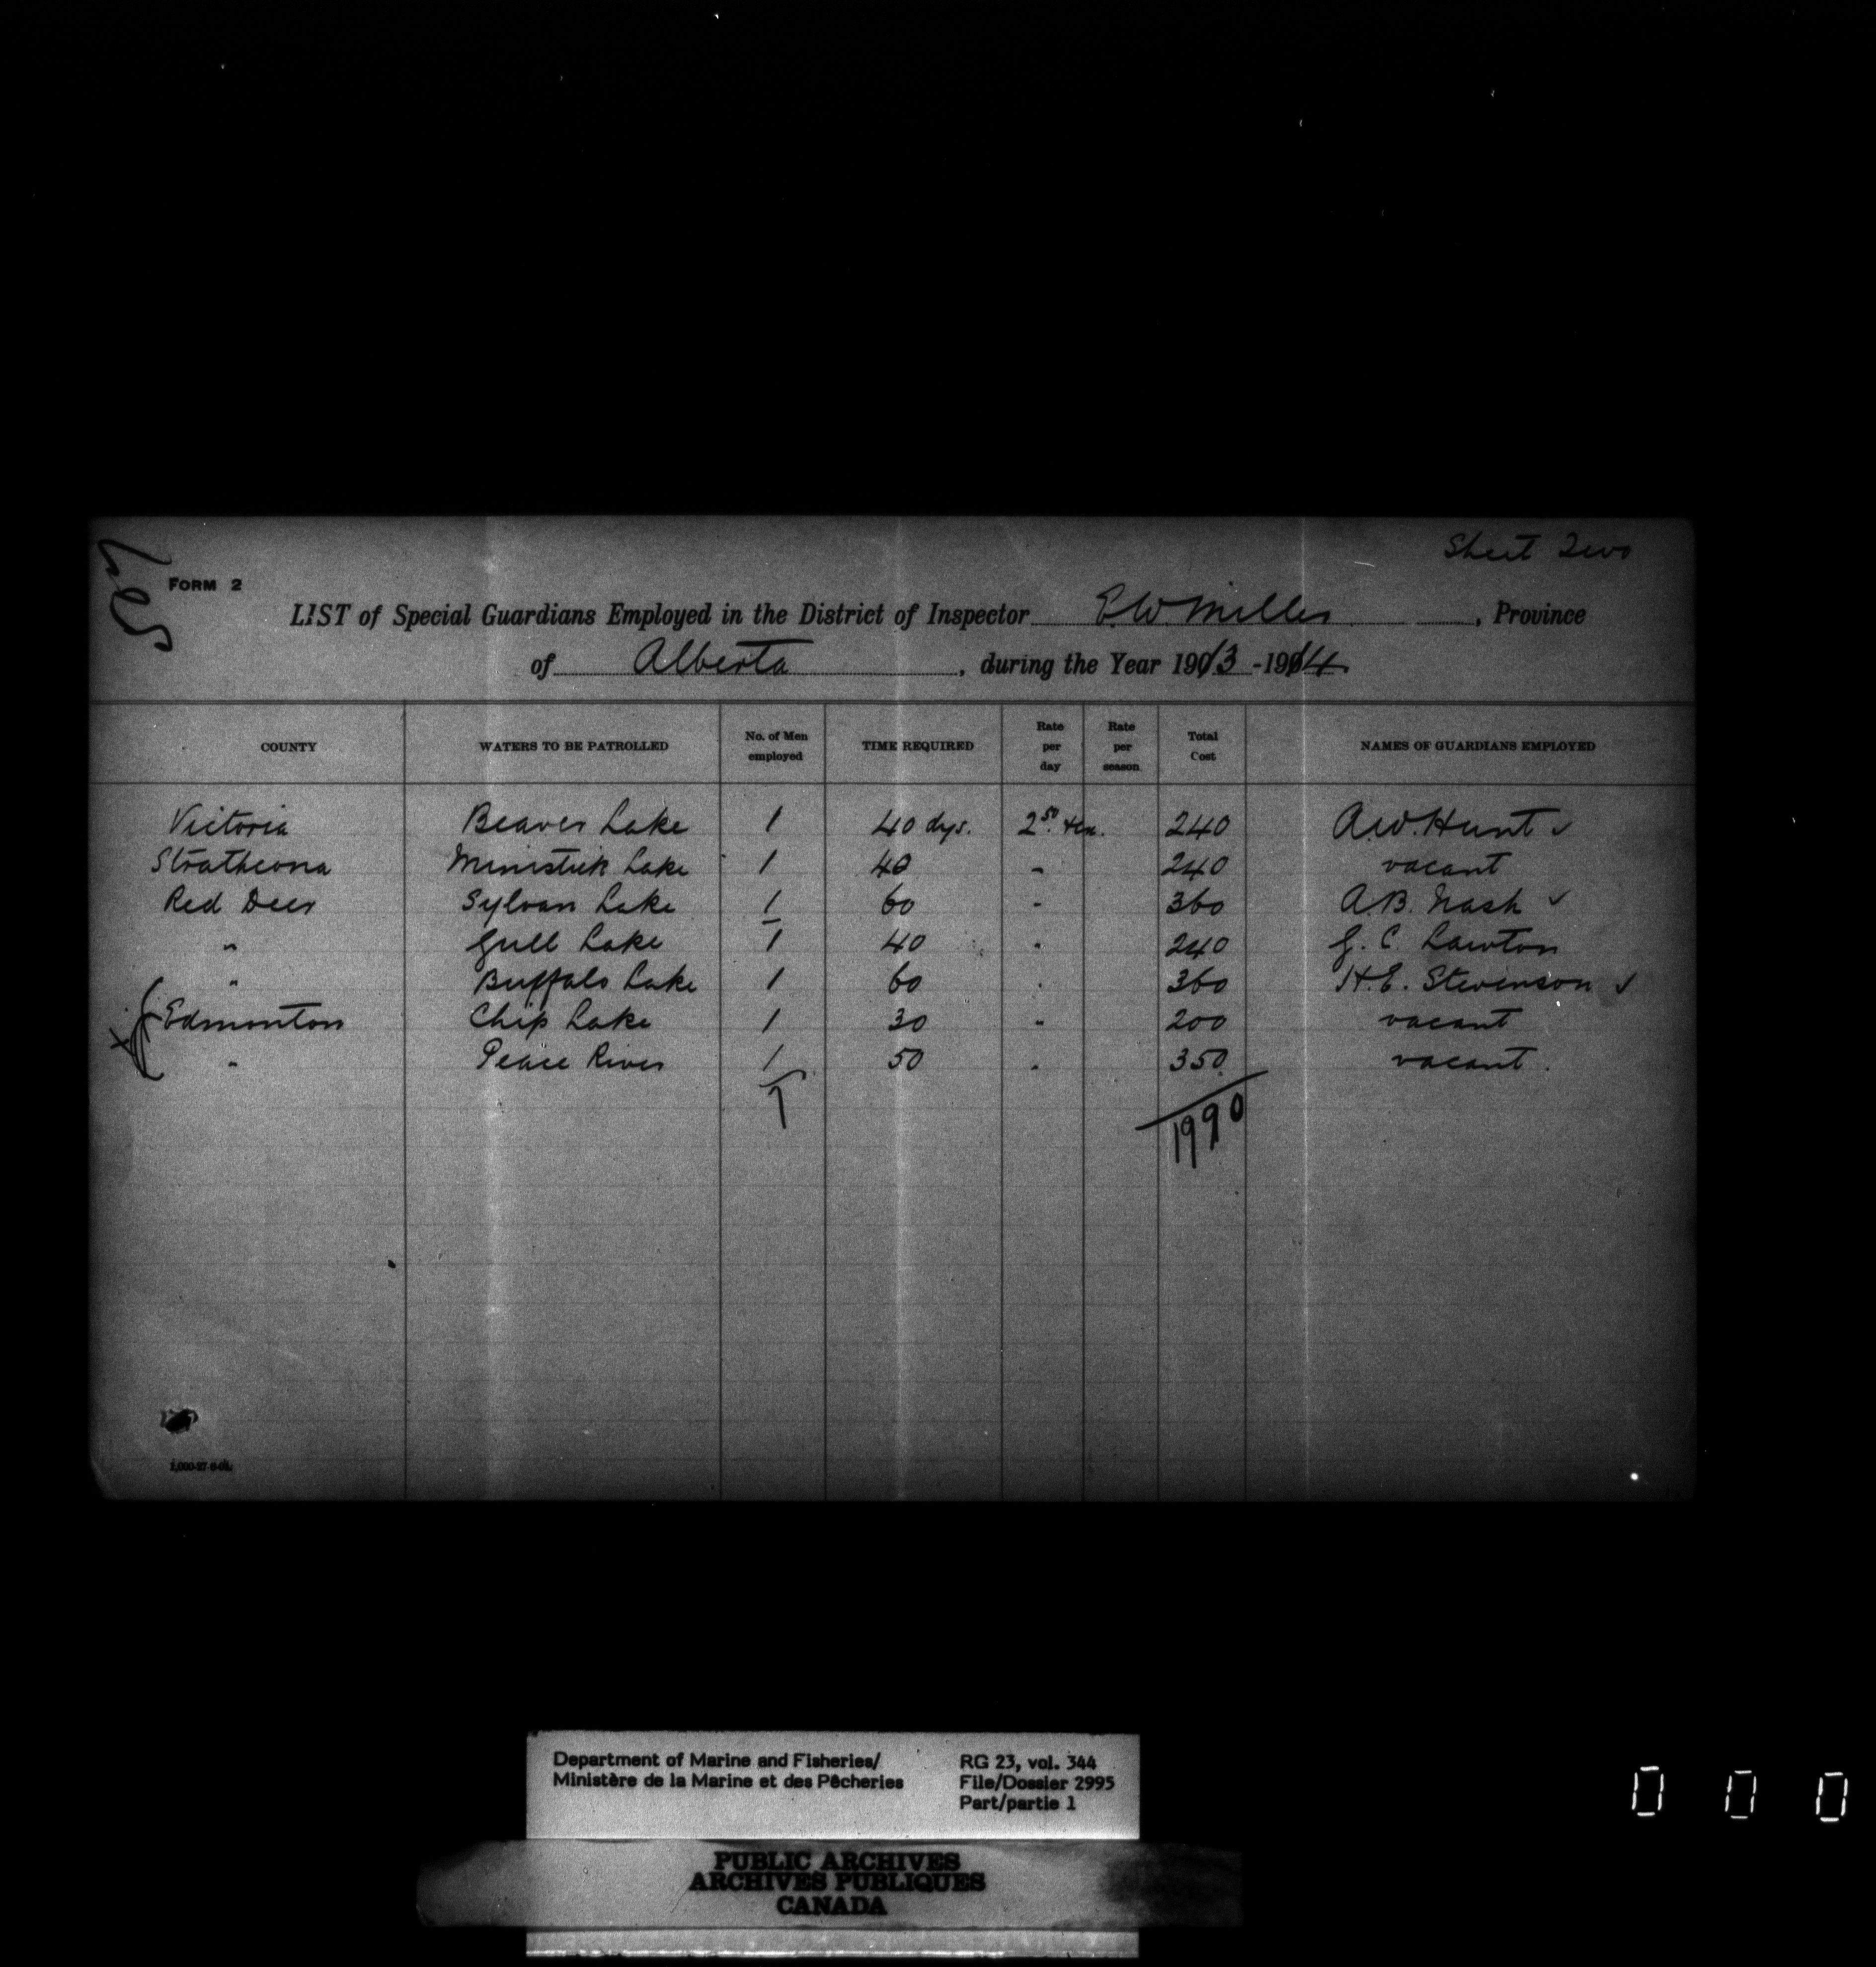 Sheet Two
FORM 2
LIST of Special Guardians Employed in the District of Inspector E.W. Miller, Province
of Alberta, during the Year 1913-1914.
COUNTY WATERS TO BE PATROLLED No. of Men employed TIME REQUIRED Rate per day Rate per season Total Cost NAMES OF GUARDIANS EMPLOYED
Victoria Beaver Lake 1 40 dys. 2.50 + ex. 240 A.W. Hunt ✓
Strathcona Ministik Lake 1 40 " 240 vacant
Red Deer Sylvan Lake 1 60 " 360 A.B. Nash ✓
" Gull Lake 1 40 " 240 G. C. Lawton
" Buffalo Lake 1 60 " 360 H.E. Stevenson ✓
Edmonton Chip Lake 1 30 " 200 vacant
" Peace River 1 50 " 350 vacant.
7 1990
Department of Marine and Fisheries/ RG 23, vol. 344
Ministère de la Marine et des Pêcheries File/Dossier 2995
Part/partie 1
PUBLIC ARCHIVES
ARCHIVES PUBLIQUES
CANADA
0 0 0